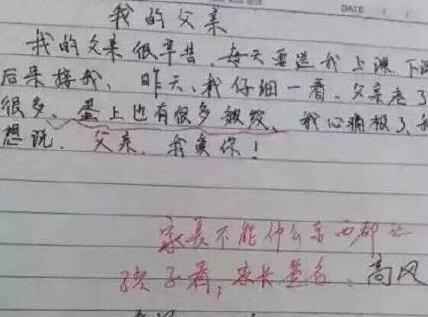 DATE / /
我的父亲
我的父亲很辛苦，每天要送我上课，下课
后来接我，昨天，我仔细一看，父亲老了
很多，蛋上也有很多皱纹，我心痛极了，我
想说，父亲，我爱你！
家长不能什么东西都让
孩子看，家长签名：高风